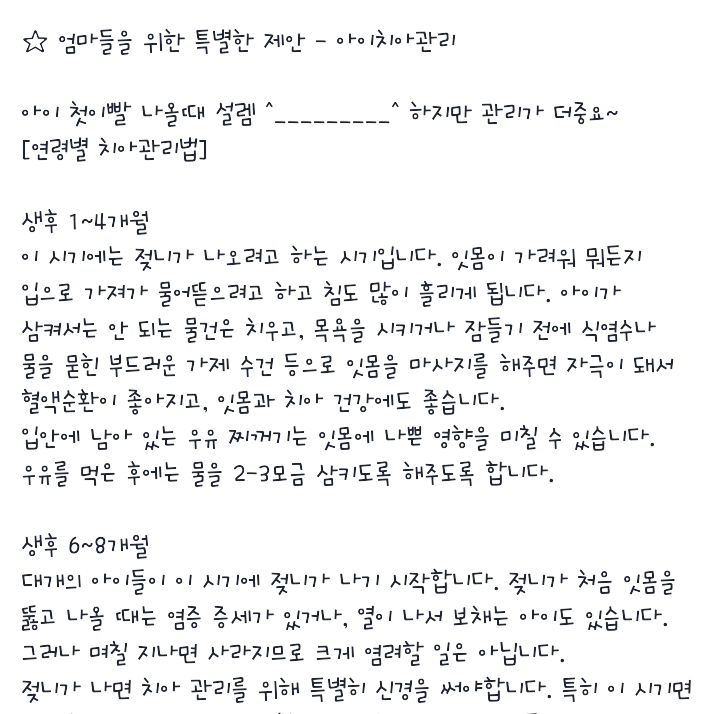 ☆ 엄마들을 위한 특별한 제안 - 아이치아관리
아이 첫이빨 나올때 설렘 ^_________^ 하지만 관리가 더중요~
[연령별 치아관리법]
생후 1~4개월
이 시기에는 젖니가 나오려고 하는 시기입니다. 잇몸이 가려워 뭐든지
입으로 가져가 물어뜯으려고 하고 침도 많이 흘리게 됩니다. 아이가
삼켜서는 안 되는 물건은 치우고, 목욕을 시키거나 잠들기 전에 식염수나
물을 묻힌 부드러운 가제 수건 등으로 잇몸을 마사지를 해주면 자극이 돼서
혈액순환이 좋아지고, 잇몸과 치아 건강에도 좋습니다.
입안에 남아 있는 우유 찌꺼기는 잇몸에 나쁜 영향을 미칠 수 있습니다.
우유를 먹은 후에는 물을 2-3모금 삼키도록 해주도록 합니다.
생후 6~8개월
대개의 아이들이 이 시기에 젖니가 나기 시작합니다. 젖니가 처음 잇몸을
뚫고 나올 때는 염증 증세가 있거나, 열이 나서 보채는 아이도 있습니다.
그러나 며칠 지나면 사라지므로 크게 염려할 일은 아닙니다.
젖니가 나면 치아 관리를 위해 특별히 신경을 써야합니다. 특히 이 시기면